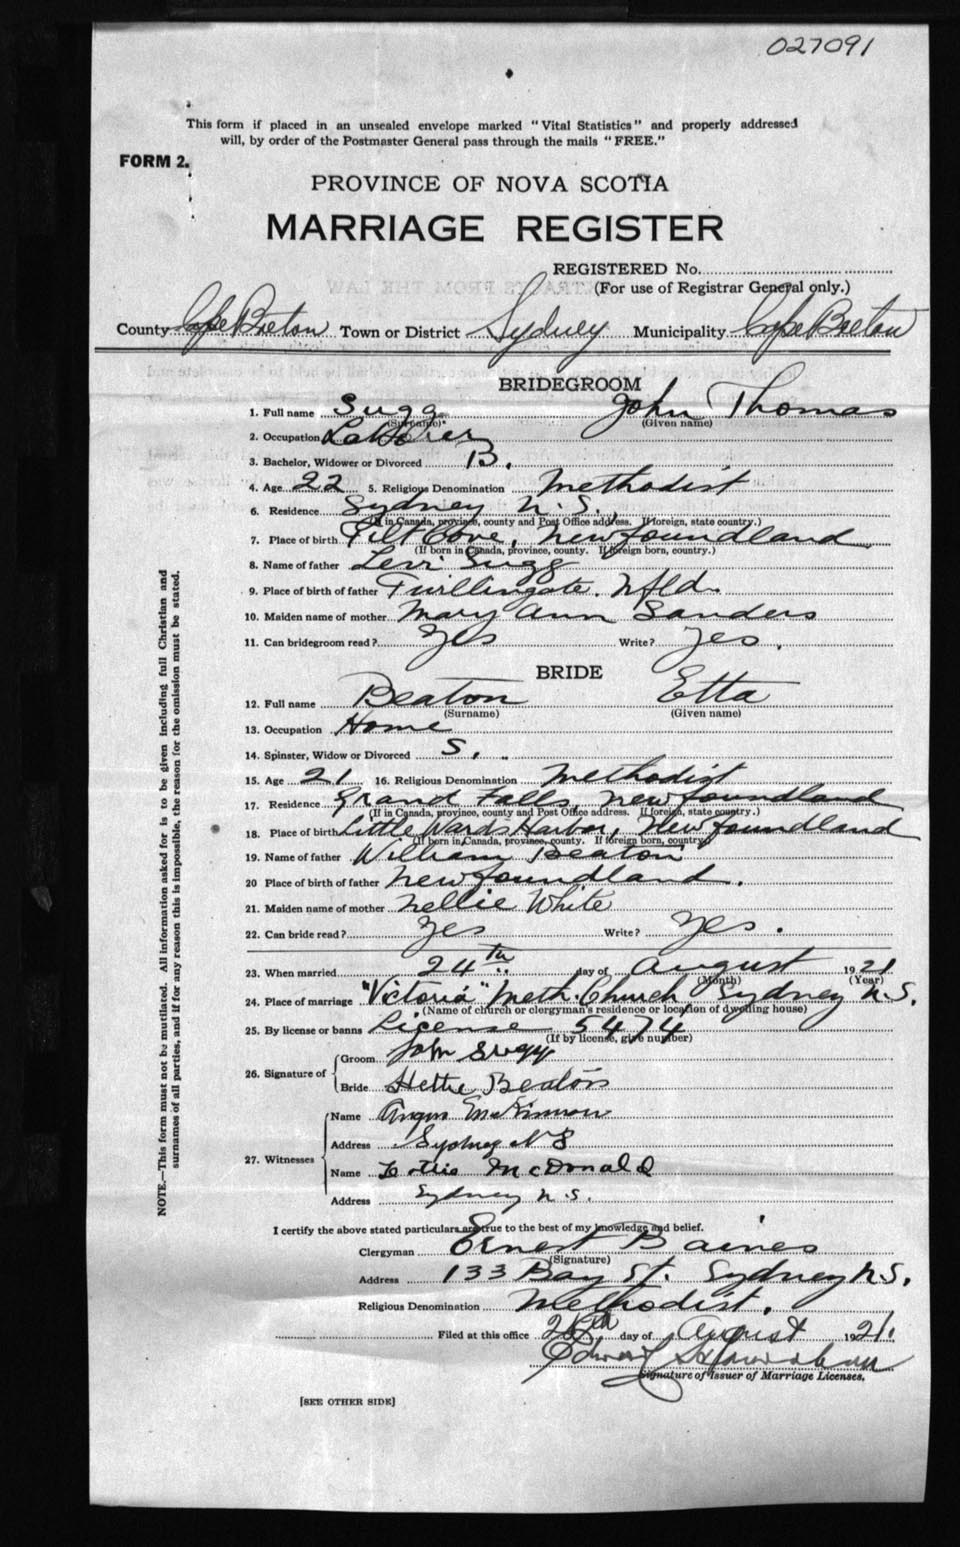 027091
This form if placed in an unsealed envelope marked "Vital Statistics" and properly addressed
will, by order of the Postmaster General pass through the mails "FREE."
FORM 2.
PROVINCE OF NOVA SCOTIA
MARRIAGE REGISTER
REGISTERED No.
(For use of Registrar General only.)
County Cape Breton Town or District Sydney Municipality Cape Breton
BRIDEGROOM
1. Full name Sugg John Thomas
(Surname) (Given name)
2. Occupation Laborer
3. Bachelor, Widower or Divorced B.
4. Age 22 5. Religious Denomination Methodist
6. Residence Sydney N.S.
(If in Canada, province, county and Post Office address. If foreign, state country.)
7. Place of birth Tilt Cove, Newfoundland
(If born in Canada, province, county. If foreign born, country.)
8. Name of father Levi Sugg
9. Place of birth of father Twillingate. Nfld.
10. Maiden name of mother Mary Ann Sanders
11. Can bridegroom read? Yes Write? Yes.
BRIDE
12. Full name Beaton Etta
(Surname) (Given name)
13. Occupation Home
14. Spinster, Widow or Divorced S.
15. Age 21 16. Religious Denomination Methodist
17. Residence Grand Falls, Newfoundland
(If in Canada, province, county and Post Office address. If foreign, state country.)
18. Place of birth Little Wards Harbor, Newfoundland
(If born in Canada, province, county. If foreign born, country)
19. Name of father William Beaton
20 Place of birth of father Newfoundland.
21. Maiden name of mother Nellie White
22. Can bride read? Yes Write? Yes.
23. When married 24th day of August 1921
(Month) (Year)
24. Place of marriage "Victoria" Meth. Church Sydney N.S.
(Name of church or clergyman's residence or location of dwelling house)
25. By license or banns License 5474
(If by license, give number)
26. Signature of
Groom John Sugg
Bride Hettie Beaton
27. Witnesses
Name Angus McKinnon
Address Sydney NS
Name Lottie McDonald
Address Sydney N.S.
I certify the above stated particulars are true to the best of my knowledge and belief.
Clergyman Ernest Baines
(Signature)
Address 133 Bay St. Sydney N.S.
Religious Denomination Methodist.
Filed at this office day of August 1921.
Edward
Signature of Issuer of Marriage Licenses.
[SEE OTHER SIDE]
NOTE.—This form must not be mutilated. All information asked for is to be given including full Christian and
surnames of all parties, and if for any reason this is impossible, the reason for the omission must be stated.